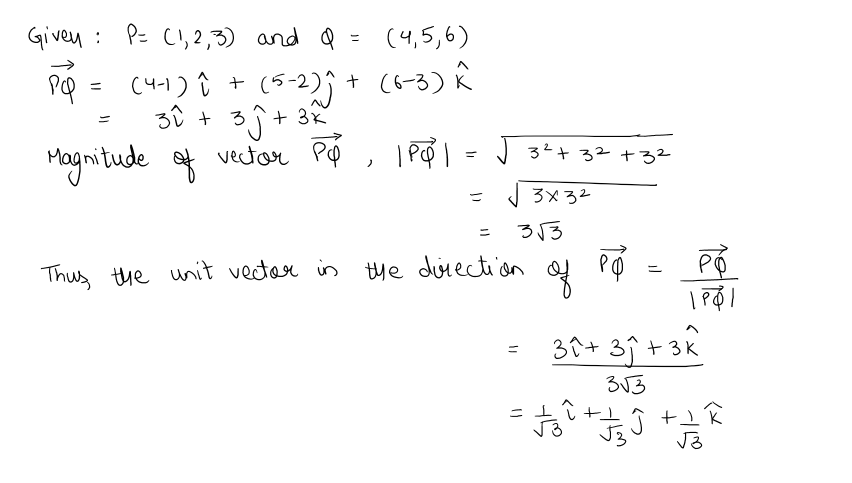 Given : P= (1,2,3) and Q = (4,5,6)
$\overrightarrow{PQ}$ = (4-1) $\hat{i}$ + (5-2)$\hat{j}$ + (6-3) $\hat{k}$
= 3$\hat{i}$ + 3$\hat{j}$ + 3$\hat{k}$
Magnitude of vector $\overrightarrow{PQ}$ , |$\overrightarrow{PQ}$| = $\sqrt{3^2 + 3^2 + 3^2}$
= $\sqrt{3 \times 3^2}$
= 3√3
Thus, the unit vector in the direction of $\overrightarrow{PQ}$ = $\frac{\overrightarrow{PQ}}{|\overrightarrow{PQ}|}$
= $\frac{3\hat{i} + 3\hat{j} + 3\hat{k}}{3\sqrt{3}}$
= $\frac{1}{\sqrt{3}}\hat{i} + \frac{1}{\sqrt{3}}\hat{j} + \frac{1}{\sqrt{3}}\hat{k}$